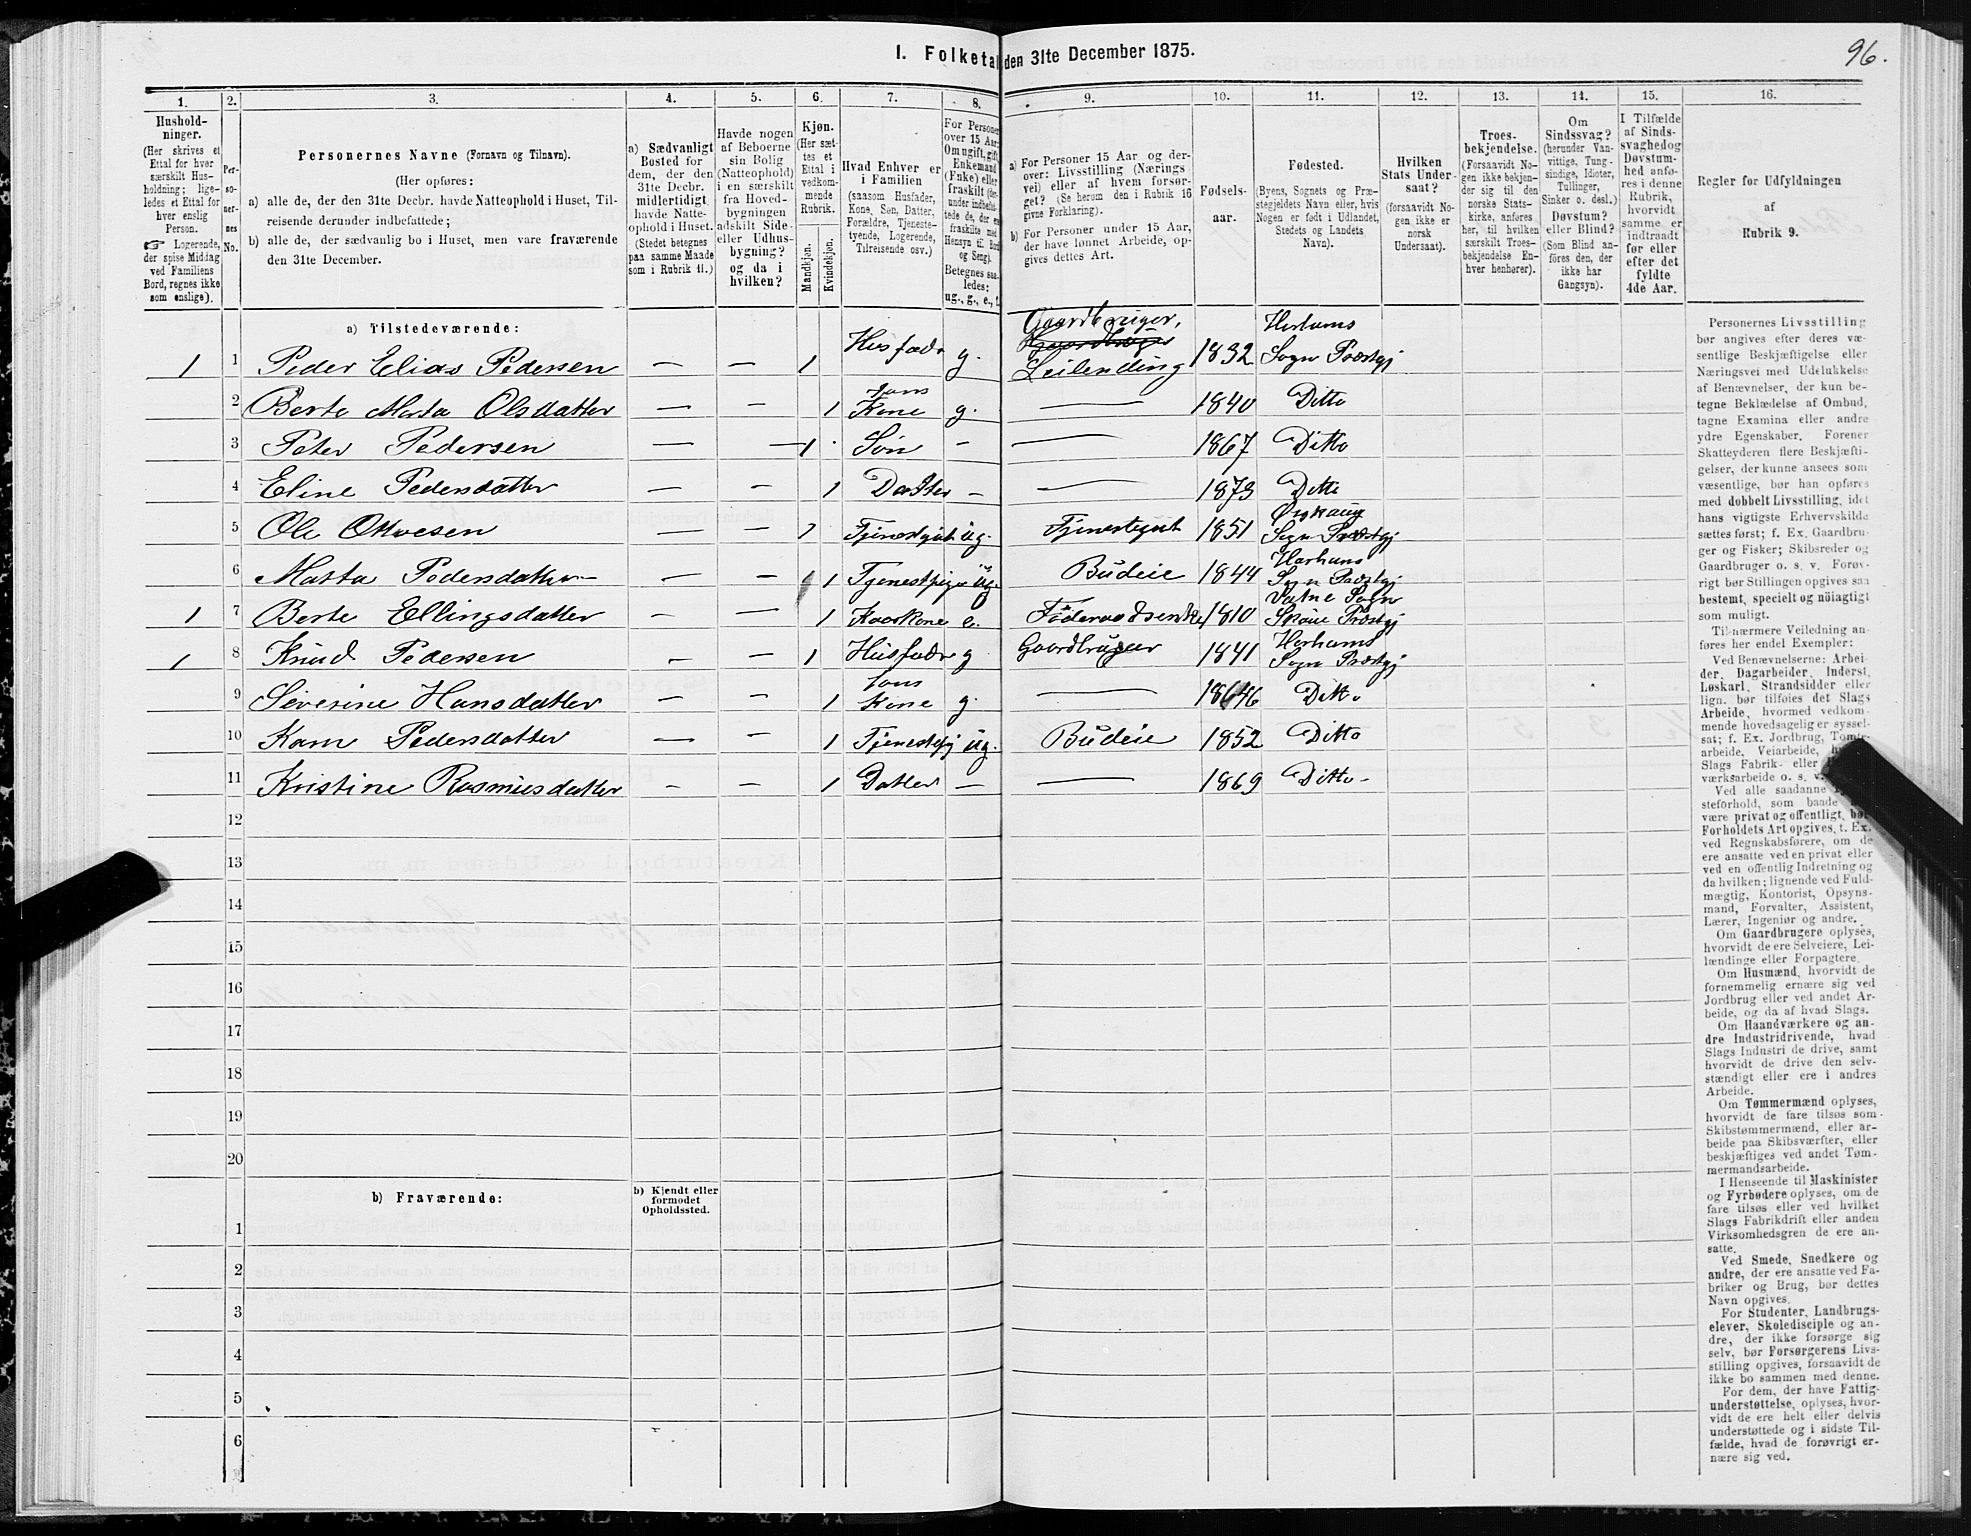 I. Folketal den 31te December 1875.
96.
1. 2. 3. 4. 5. 6. 7. 8. 9. 10. 11. 12. 13. 14. 15. 16.
Hushold-
ninger.
(Her skrives et
Ettal for hver
særskilt Hus-
holdning; lige-
ledes et Ettal for
hver enslig
Person.
☞ Logerende,
der spise Middag
ved Familiens
Bord, regnes ikke
som enslige).
Per-
so-
ner-
nes
No.
Personernes Navne (Fornavn og Tilnavn).
(Her opføres:
a) alle de, der den 31te Decbr. havde Natteophold i Huset, Til-
reisende derunder indbefattede;
b) alle de, der sædvanlig bo i Huset, men vare fraværende
den 31te December.
a) Sædvanligt
Bosted for
dem, der den
31te Decbr.
midlertidigt
havde Natte-
ophold i Huset.
(Stedet betegnes
paa samme Maade
som i Rubrik 11.)
Havde nogen
af Beboerne
sin Bolig
(Natteophold)
i en særskilt
fra Hoved-
bygningen
adskilt Side-
eller Udhus-
bygning?
og da i
hvilken?
Kjøn.
(Her sæt-
tes et
Ettal i
vedkom-
mende
Rubrik.
Mandkjøn.
Kvindekjøn.
Hvad Enhver er
i Familien
(saasom Husfader,
Kone, Søn, Datter,
Forældre, Tjeneste-
tyende, Logerende,
Tilreisende osv.)
For Personer
over 15 Aar:
Om ugift, gift,
Enkemand
(Enke) eller
fraskilt (der-
under indbefat-
tede de, der ere
fraskilte med
Hensyn til Bord
og Seng).
Betegnes saa-
ledes:
ug., g., e., f.
a) For Personer 15 Aar og der-
over: Livsstilling (Nærings
vei) eller af hvem forsør-
get? (Se herom den i Rubrik 16
givne Forklaring).
b) For Personer under 15 Aar,
der have lønnet Arbeide, op-
gives dettes Art.
Fødsels-
aar.
Fødested.
(Byens, Sognets og Præ-
stegjeldets Navn eller, hvis
Nogen er født i Udlandet,
Stedets og Landets
Navn).
Hvilken
Stats Under-
saat?
(forsaavidt No-
gen ikke er
norsk
Undersaat).
Troes-
bekjendelse.
(Forsaavidt No-
gen ikke bekjen-
der sig til den
norske Stats-
kirke, anføres
her, til hvilken
særskilt Troes-
bekjendelse En-
hver henhører).
Om
Sindssvag?
(herunder Van-
vittige, Tung-
sindige, Idioter,
Tullinger,
Sinker o. desl.)
Døvstum?
eller Blind?
(Som Blind an-
føres den, der
ikke har
Gangsyn).
I Tilfælde
af Sinds-
svaghed og
Døvstum-
hed anfø-
res i denne
Rubrik,
hvorvidt
samme er
indtraadt
før eller
efter det
fyldte
4de Aar.
Regler for Udfyldningen
af
Rubrik 9.
a) Tilstedeværende:
1 1 Peder Elias Pedersen — — 1 Husfader g. Gaardbruger, Leilending 1832 Herhams Sogn Præstgj
2 Berte Marta Olsdatter — — 1 hans Kone g. — 1840 Ditto
3 Peter Pedersen — — 1 Søn — — 1867 Ditto
4 Eline Pedersdatter — — 1 Datter — — 1873 Ditto
5 Ole — — 1 ug. 1851 Sogn Præstgj
6 Matta Pedersdatter — — 1 Tjenestpige ug. Budeie 1844 Herhams Sogn Præstgj
1 7 Berte Ellingsdatter — — 1 e. 1810 Vatne Sogn Præstgj
1 8 Knud Pedersen — — 1 Husfader g Gaardbruger 1841 Herhams Sogn Præstgj
9 Severine Hansdatter — — 1 hans Kone g. — 1846 Ditto
10 Karn Pedersdatter — — 1 Tjenestpj ug. Budeie 1852 Ditto
11 Kristine Rasmusdatter — — 1 Datter — — 1869 Ditto
12
13
14
15
16
17
18
19
20
b) Fraværende:
b) Kjendt eller
formodet
Opholdssted.
1
2
3
4
5
6
Personernes Livsstilling
bør angives efter deres væ-
sentlige Beskjæftigelse eller
Næringsvei med Udelukkelse
af Benævnelser, der kun be-
tegne Beklædelse af Ombud,
tagne Examina eller andre
ydre Egenskaber. Forener
Skatteyderen flere Beskjæfti-
gelser, der kunne ansees som
væsentlige, bør han opføres
med dobbelt Livsstilling, idet
hans vigtigste Erhvervskilde
sættes først; f. Ex. Gaardbru-
ger og Fisker; Skibsreder og
Gaardbruger o. s. v. Forøv-
rigt bør Stillingen opgives saa
bestemt, specielt og nöiagtigt
som muligt.
Til nærmere Veiledning an-
føres her endel Exempler:
Ved Benævnelserne: Arbei-
der, Dagarbeider, Inderst,
Løskarl, Strandsidder eller
lign. bør tilføies det Slags
Arbeide, hvormed vedkom-
mende hovedsagelig er syssel-
sat; f. Ex. Jordbrug, Tømte-
arbeide, Veiarbeide,
Slags Fabrik- eller
værksarbeide o. s. v.
Ved alle saadanne
steforhold, som baade
være privat og offentligt, bør
Forholdets Art opgives, t. Ex.
ved Regnskabsførere, om de
ere ansatte ved en privat eller
ved en offentlig Indretning og
da hvilken; lignende ved Fuld-
mægtig, Kontorist, Opsyns-
mand, Forvalter, Assistent,
Lærer, Ingeniør og andre.
Om Gaardbrugere oplyses,
hvorvidt de ere Selveiere, Lei-
lændinge eller Forpagtere.
Om Husmænd, hvorvidt de
fornemmelig ernære sig ved
Jordbrug eller ved andet Ar-
beide, og da af hvad Slags.
Om Haandværkere og an-
dre Industridrivende, hvad
Slags Industri de drive, samt
hvorvidt de drive den selv-
stændigt eller ere i andres
Arbeide.
Om Tømmermænd oplyses,
hvorvidt de fare tilsøs som
Skibstømmermænd, eller ar-
beide paa Skibsværfter, eller
beskjæftiges ved andet Tøm-
mermandsarbeide.
I Henseende til Maskinister
og Fyrbødere oplyses, om de
fare tilsøs eller ved hvilket
Slags Fabrikdrift eller anden
Virksomhedsgren de ere an-
satte.
Ved Smede, Snedkere og
andre, der ere ansatte ved Fa-
briker og Brug, bør dettes
Navn opgives.
For Studenter, Landbrugs-
elever, Skoledisciple og an-
dre, der ikke forsørge sig
selv, bør Forsørgerens Livs-
stilling opgives, forsaavidt de
ikke bo sammen med denne.
For dem, der have Fattig-
understøttelse, oplyses, hvor-
vidt de ere helt eller delvis
understøttede og i sidste Til-
fælde, hvad de forøvrigt er-
nære sig ved.